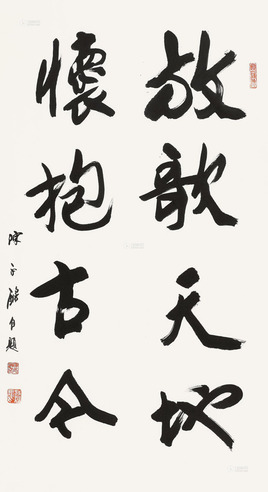 放歌天地
懷抱古今
陳
自題